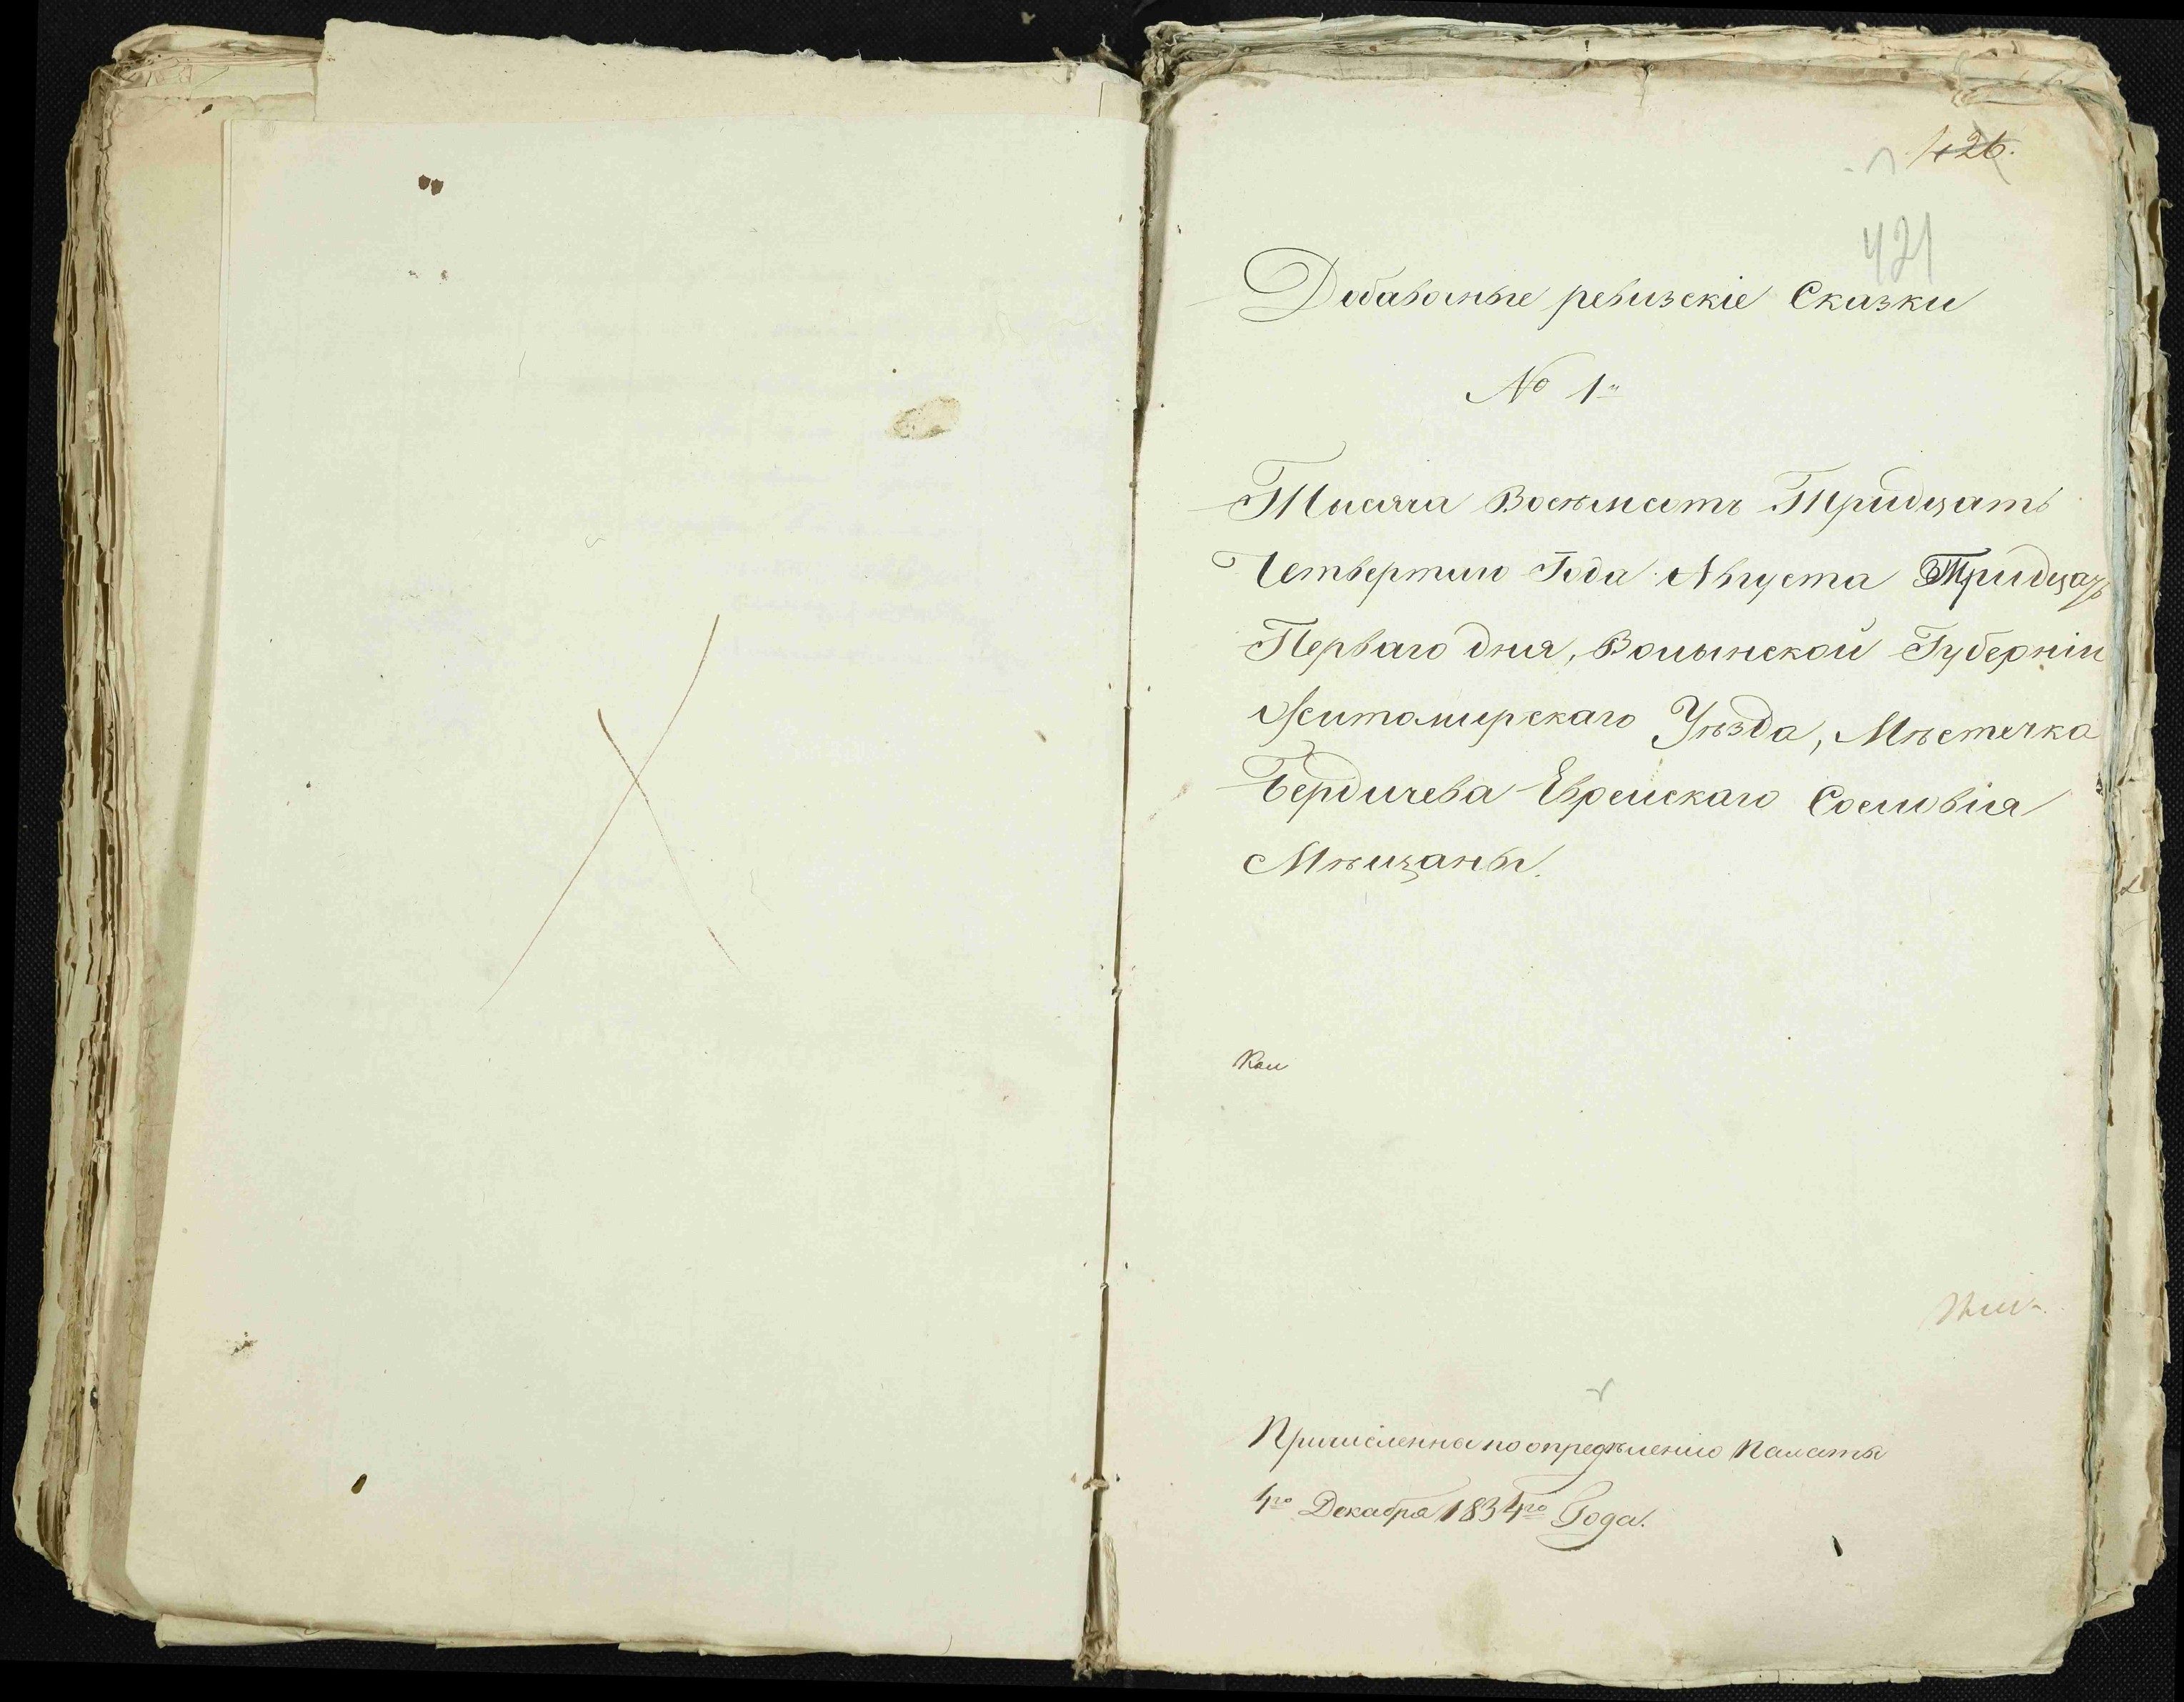 426.
421
Добавочные ревизскіе Сказки
№ 1й
Тысяча Восѣмсотъ Тридцать
Четвертаго Года Августа Тридцать
Перваго дня, Волынской Губерніи
Житомирскаго Уѣзда, Мѣстечка
Бердичева Еврейскаго Сословія
Мѣщаны.
Причисленна по опредѣленію Палаты
4го Декабря 1834го Года.